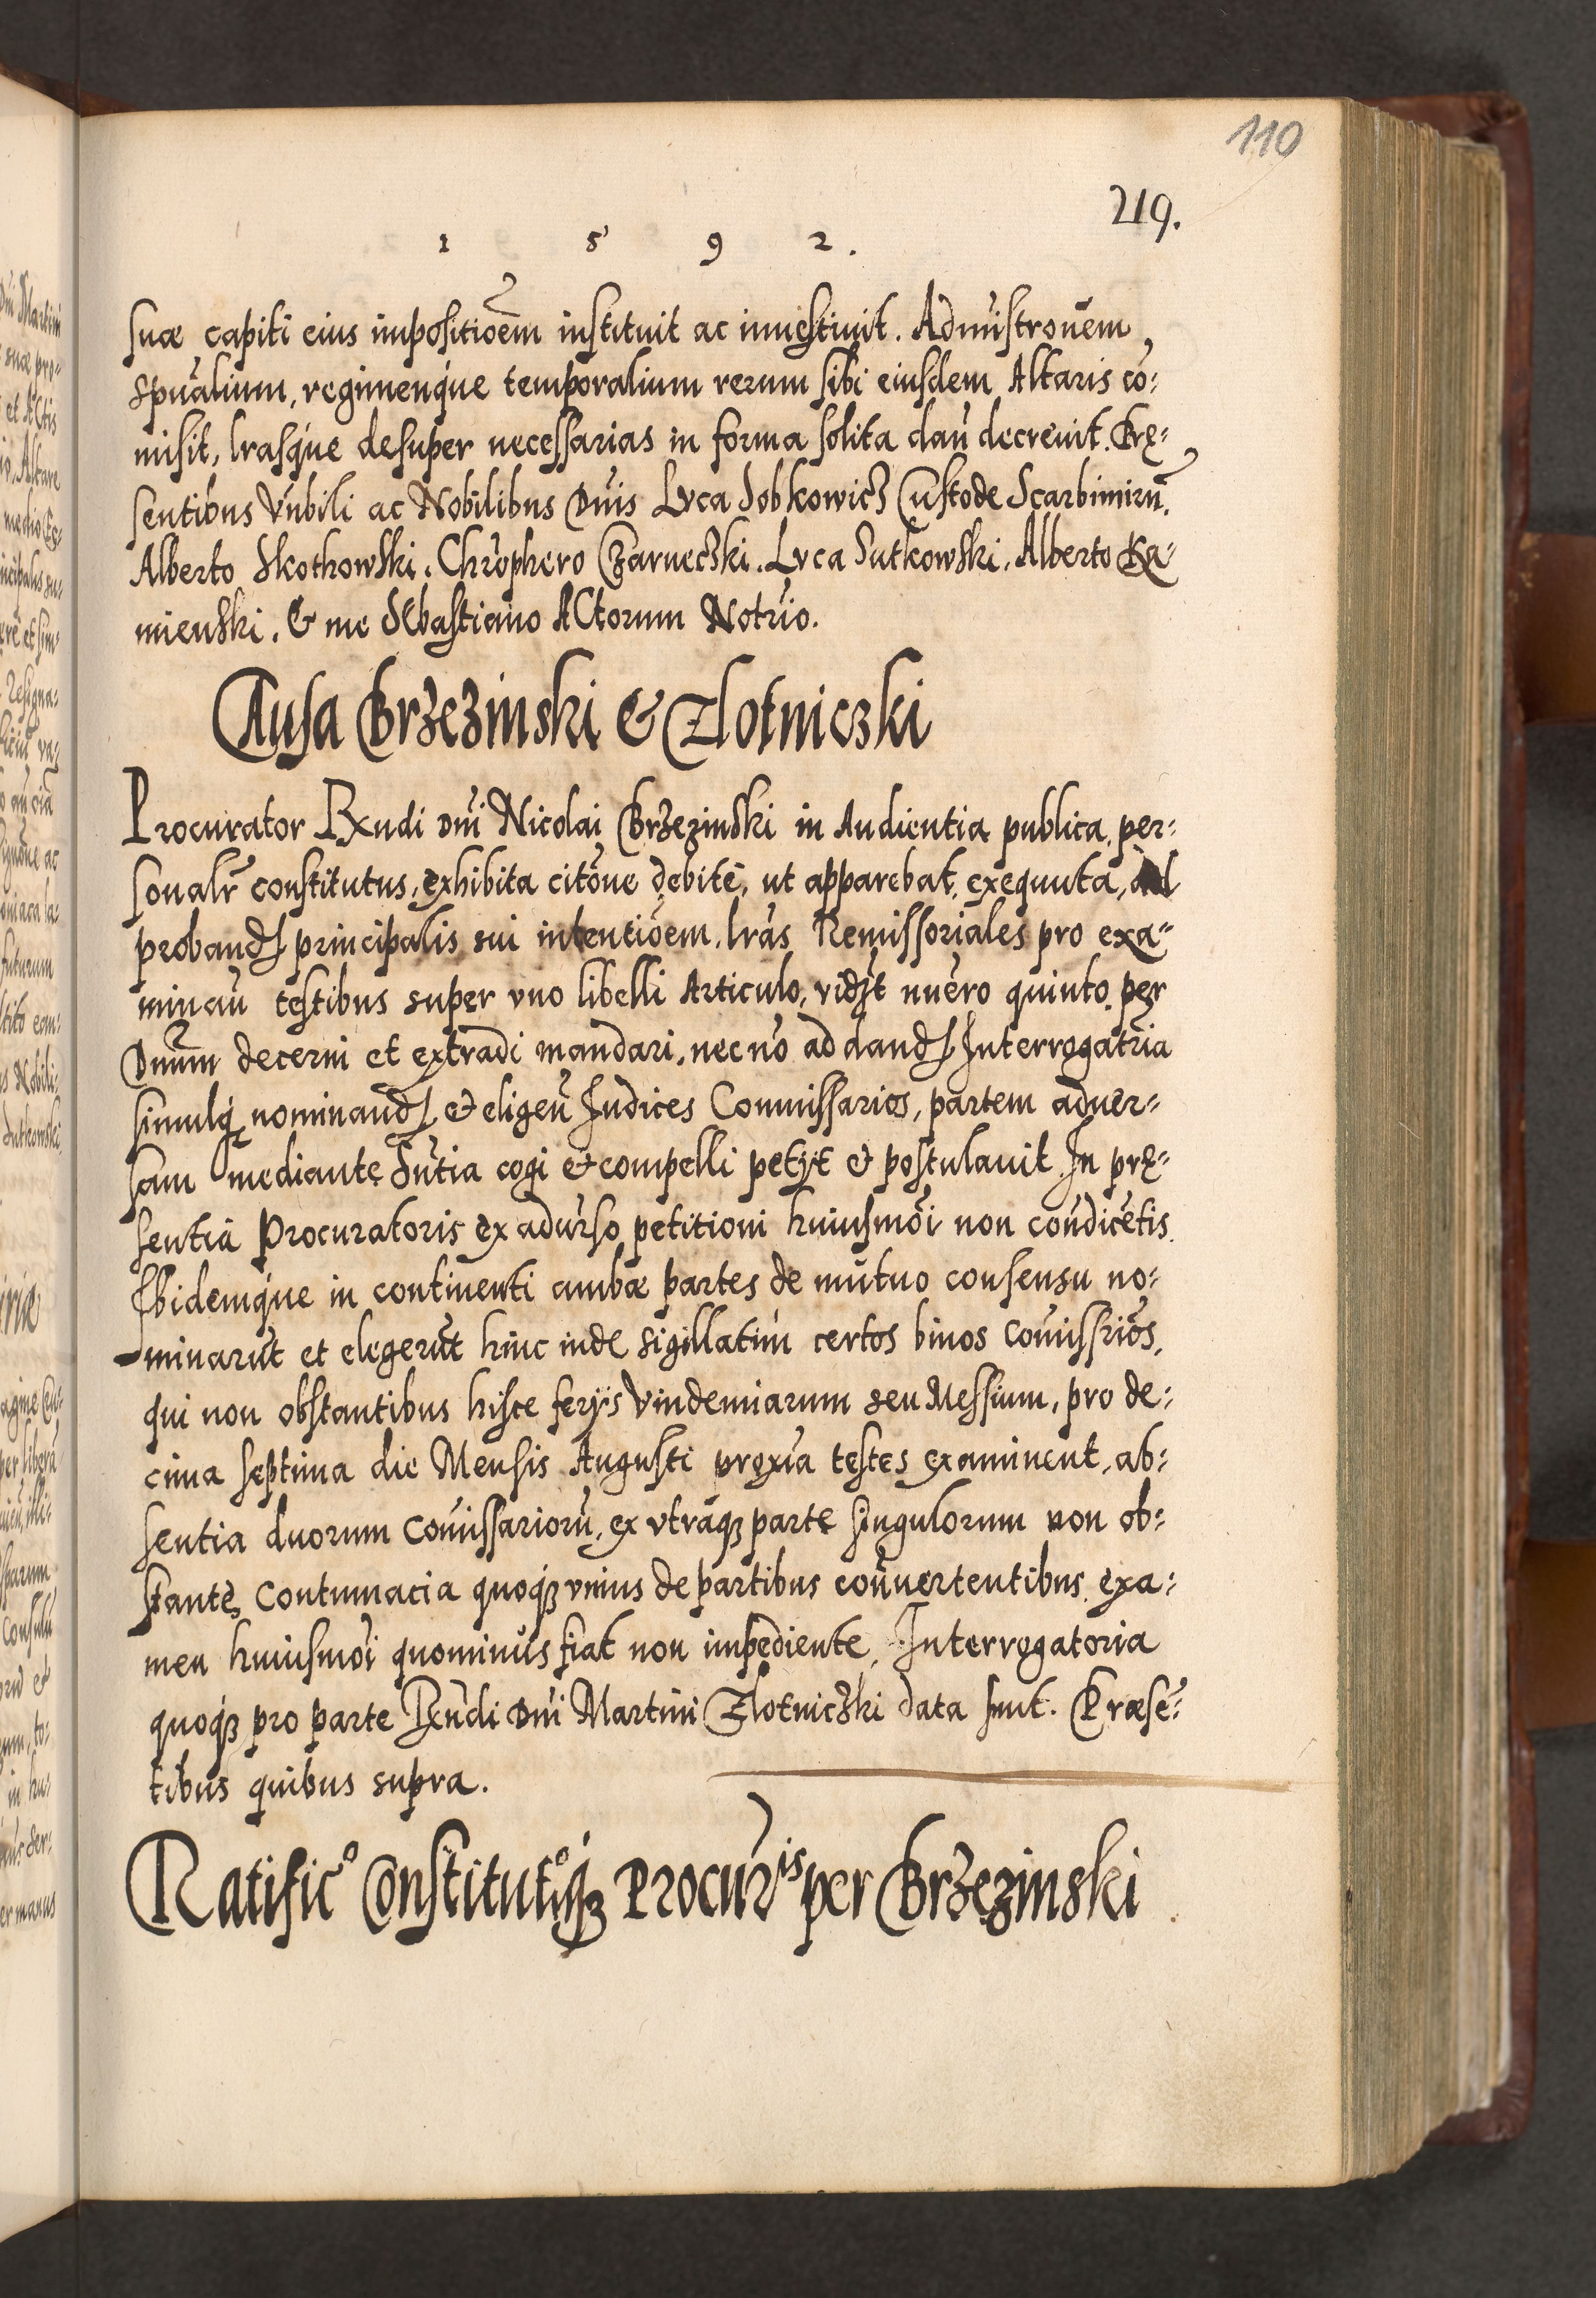 110
219.
1 5 9 2.
suæ capiti eius impositiōem instituit ac inuestiuit. Admīstronēm
spūalium, regimenque temporalium rerum sibi eiusdem Altaris cō:
misit, lrasque desuper necessarias in forma solita dan̄ decreuit. Prę:
sentibus Vnbīli ac Nobilibus Dn̄is Luca Sobkowicz Custode Scarbimirn̄.
Alberto Skothowski. Chrōphero Czarneczki. Luca Sutkowski. Alberto Ka:
mienski. & me Sebastiano Actorum Notrīo.
Causa Brzezinski & Zlotniczki
Procurator Rx̄ndi Dn̄i Nicolai Brzezinski in Audientia publica, per:
sonalr̄ constitutus, exhibita citōne debitè, ut apparebat, exequuta, ad
proband. principalis sui intentiōem, lrās Remissoriales pro exa:
minan̄ testibus super vno libelli Articulo, vidzt nūero quinto per
Dnūm decerni et extradi mandari, nec nō ad dand. Interrogatrīa
simulq̨ nominand. & eligen̄ Iudices Commissarios, partem aduer:
sam mediante Sn̄tia cogi & compelli petijt & postulauit. In prę:
sentia Procuratoris ex adūrso petitioni huiusmōi non condicētis.
Ibidemque in continenti ambæ partes de mutuo consensu no:
minarūt et elegerūt hinc inde sigillatim certos binos Comīssriōs,
qui non obstantibus hisce ferijs Vindemiarum seu Messium, pro de:
cima septima die Mensis Augusti proxīa testes examinent, ab:
sentia duorum Comīssariorū, ex vtraqȝ parte singulorum non ob:
stante, Contumacia quoqȝ vnius de partibus conuertentibus, exa:
men huiusmōi quominus fiat non impediente, Interrogatoria
quoqȝ pro parte Rx̄ndi Dn̄i Martini Zlotniczki data sunt. Præsē:
tibus quibus supra.
Ratificº Constitutºqȝ Procur̄is per Brzezinski